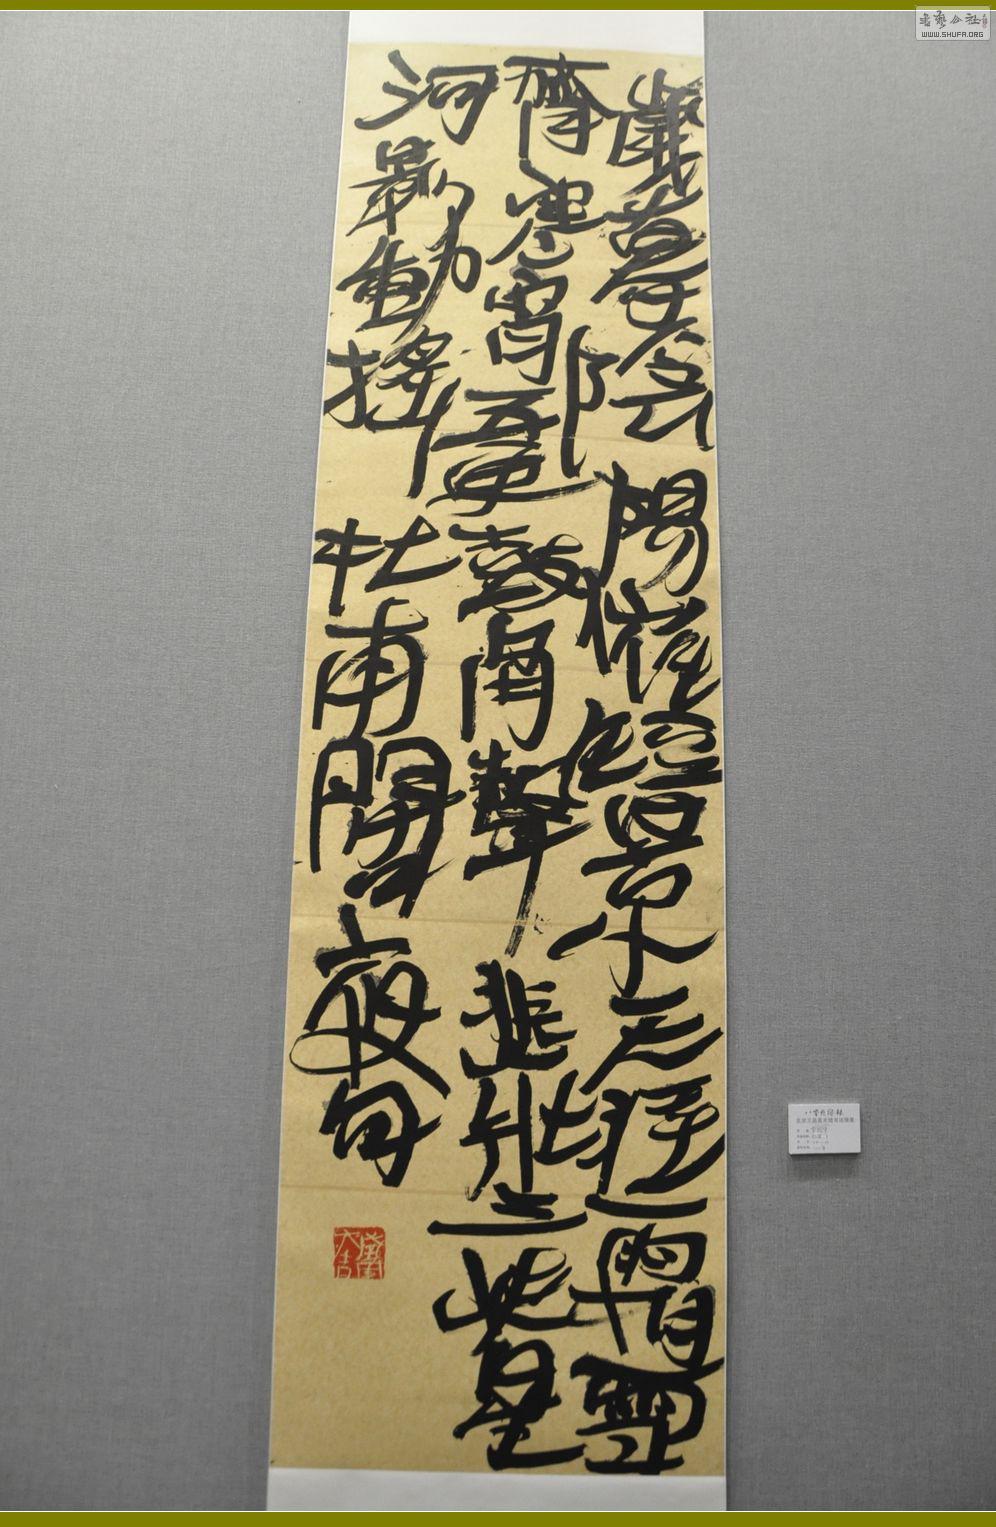 歲暮陰陽催短景天涯霜雪
霽寒宵五更鼓角聲悲壯三峽星
河影動搖 杜甫閣夜句
書藝公社
WWW.SHUFA.ORG